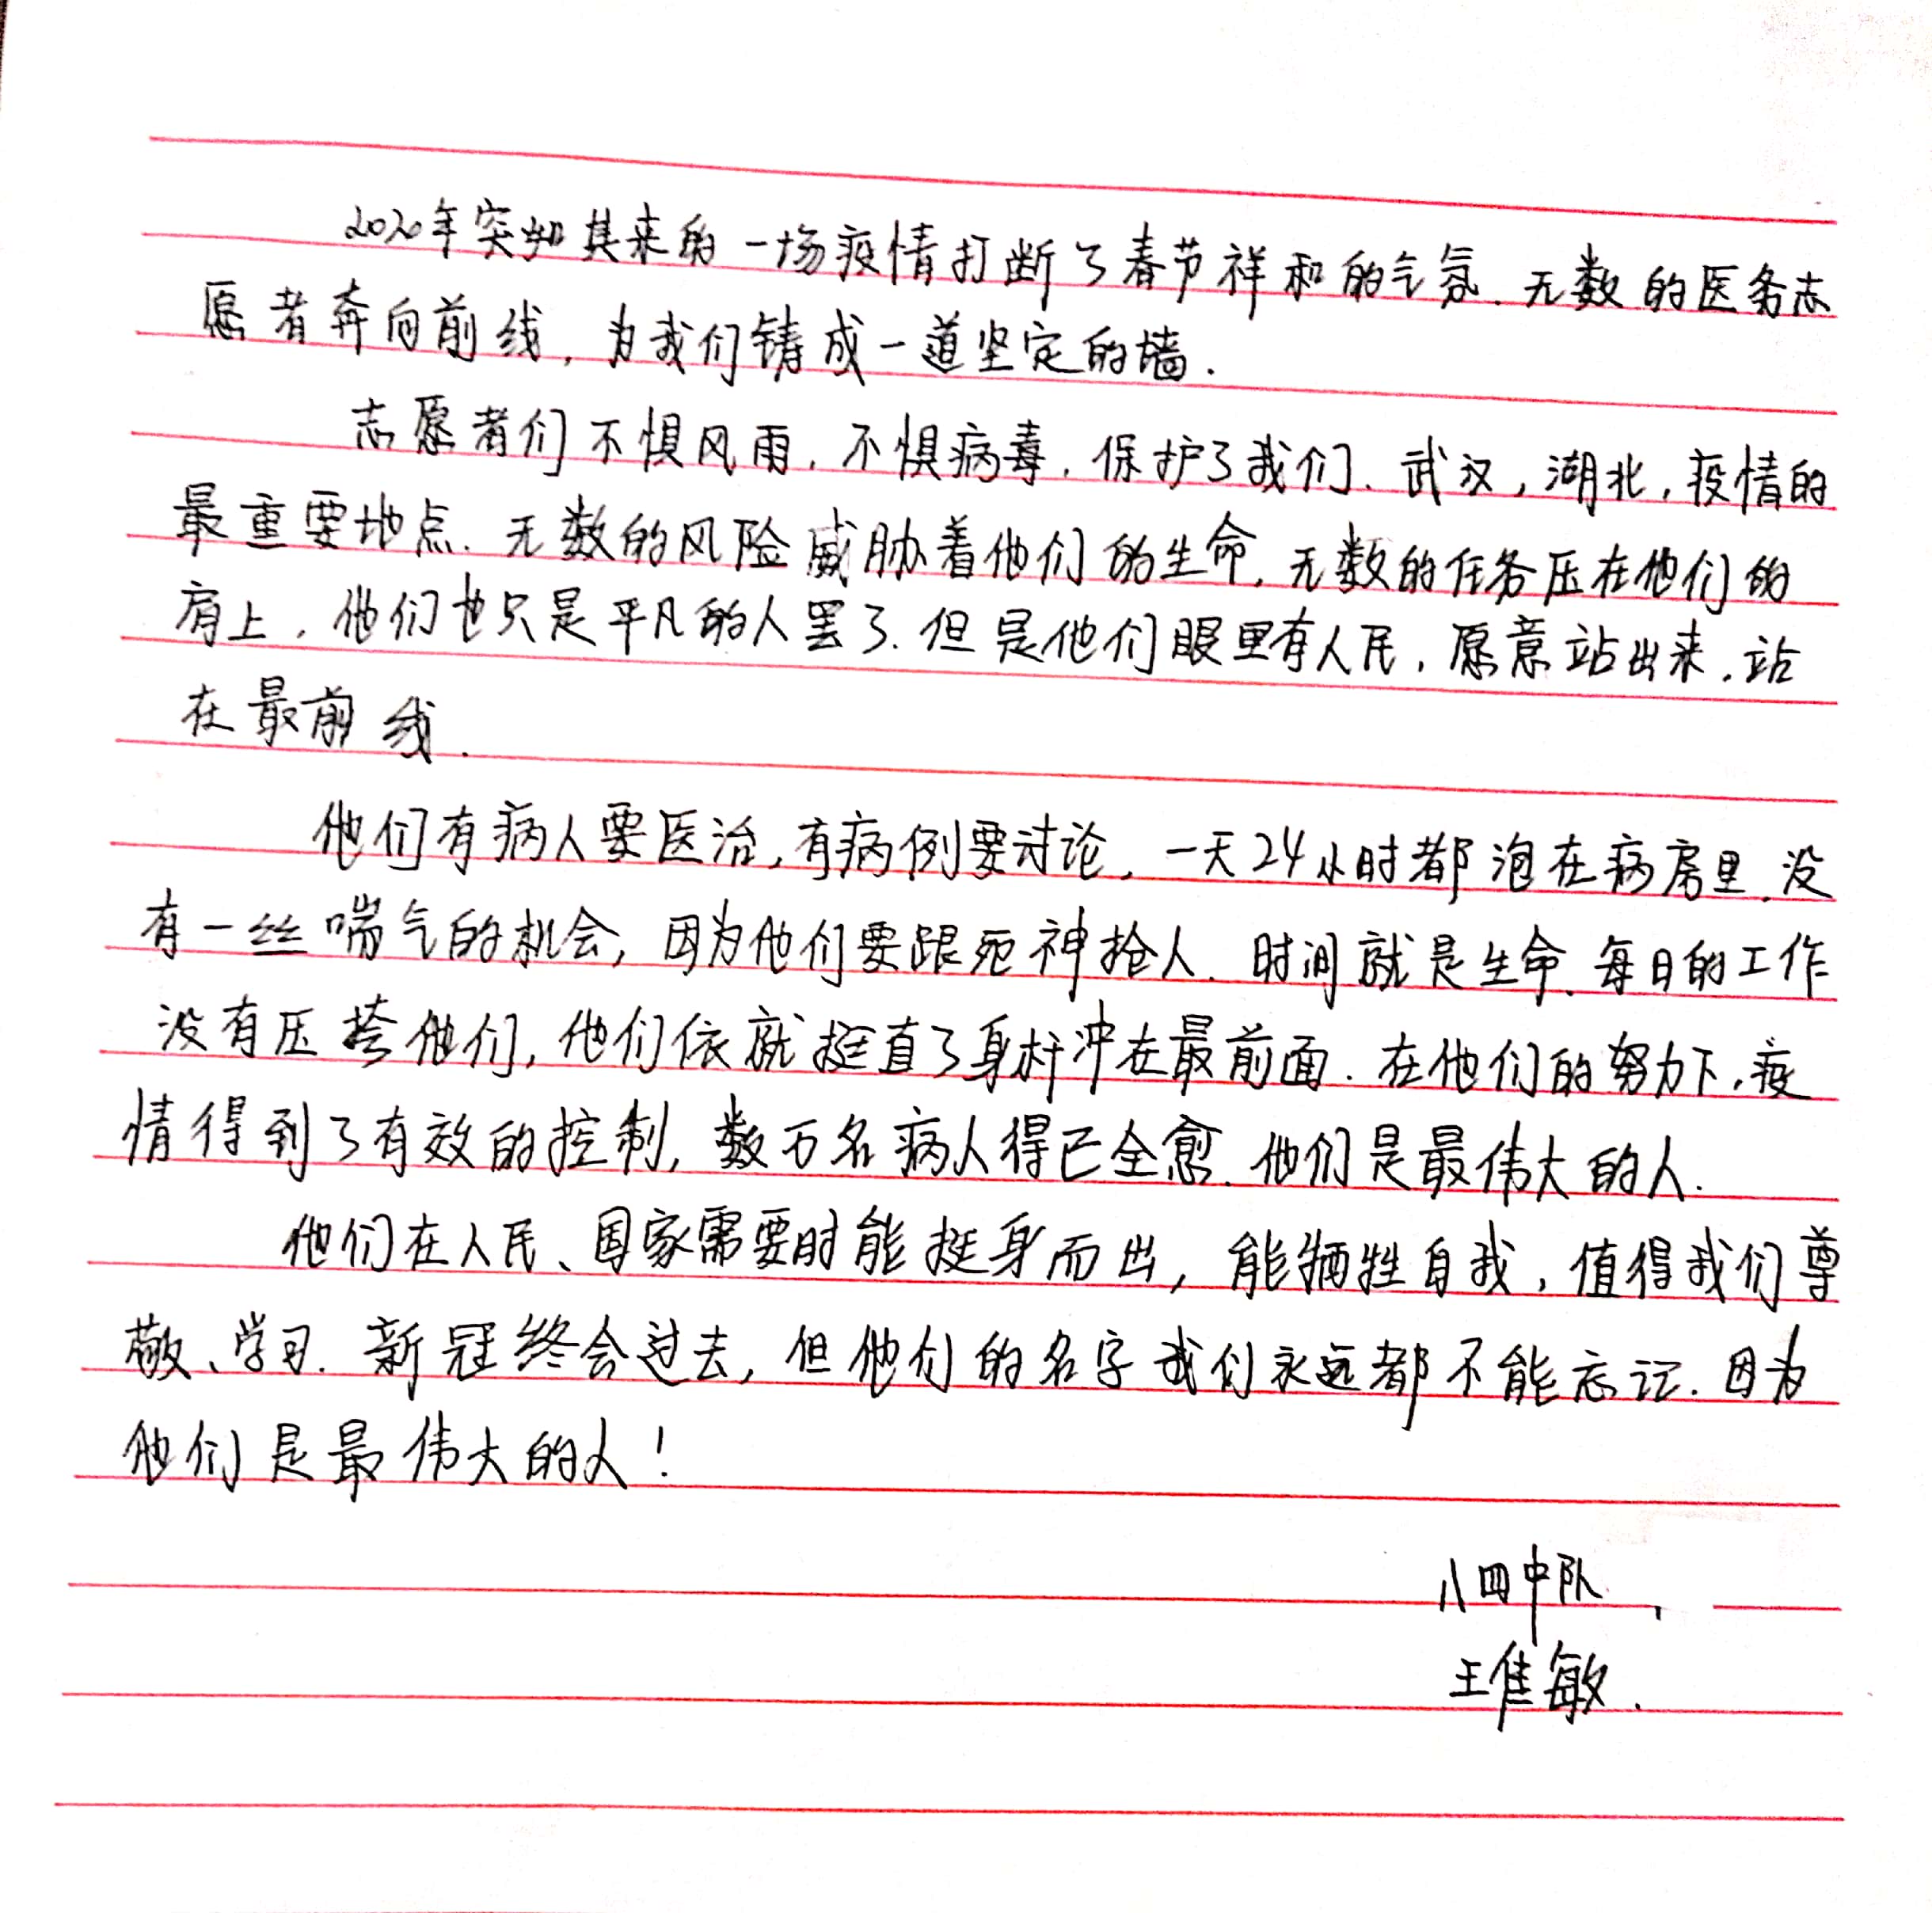 2020年突如其来的一场疫情打断了春节祥和的气氛.无数的医务志
愿者奔向前线,为我们铸成一道坚定的墙.
志愿者们不惧风雨,不惧病毒,保护了我们.武汉,湖北,疫情的
最重要地点.无数的风险威胁着他们的生命,无数的任务压在他们的
肩上,他们也只是平凡的人罢了.但是他们眼里有人民,愿意站出来,站
在最前线.
他们有病人要医治,有病例要讨论,一天24小时都泡在病房里.没
有一丝喘气的机会,因为他们要跟死神抢人.时间就是生命.每日的工作
没有压垮他们,他们依就挺直了身杆冲在最前面.在他们的努力下,疫
情得到了有效的控制,数万名病人得已全愈.他们是最伟大的人.
他们在人民、国家需要时能挺身而出,能牺牲自我,值得我们尊
敬、学习.新冠终会过去,但他们的名字我们永远都不能忘记.因为
他们是最伟大的人!
八四中队
王隹敏.